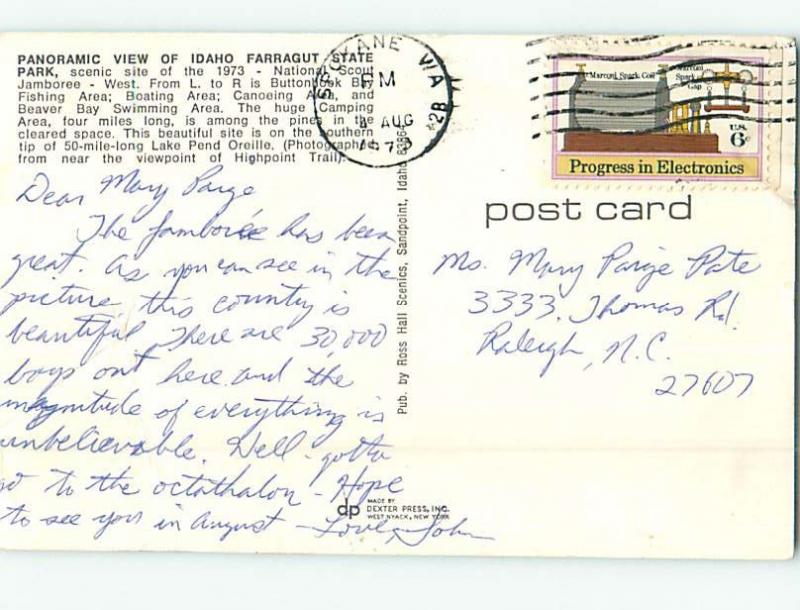 PANORAMIC VIEW OF IDAHO FARRAGUT STATE
PARK, scenic site of the 1973 - National Scout
Jamboree - West. From L. to R is Buttonhook Bay
Fishing Area; Boating Area; Canoeing Area, and
Beaver Bay Swimming Area. The huge Camping
Area, four miles long, is among the pines in the
cleared space. This beautiful site is on the southern
tip of 50-mile-long Lake Pend Oreille. (Photographed
from near the viewpoint of Highpoint Trail).
SPOKANE WA
PM
4 AUG
1973
Marconi Spark Coil
Marconi
Spark
Gap
U.S.
6c
Progress in Electronics
post card
Dear Mary Paige
The Jamboree has been
great. As you can see in the
picture this country is
beautiful. There are 30,000
boys out here and the
magnitude of everything is
unbelievable. Well - gotta
go to the octathalon - Hope
to see you in August - Love, John
Pub. by Ross Hall Scenics, Sandpoint, Idaho
Ms. Mary Paige Pate
3333 Thomas Rd.
Raleigh, N.C.
27607
dp
MADE BY
DEXTER PRESS, INC.
WEST NYACK, NEW YORK